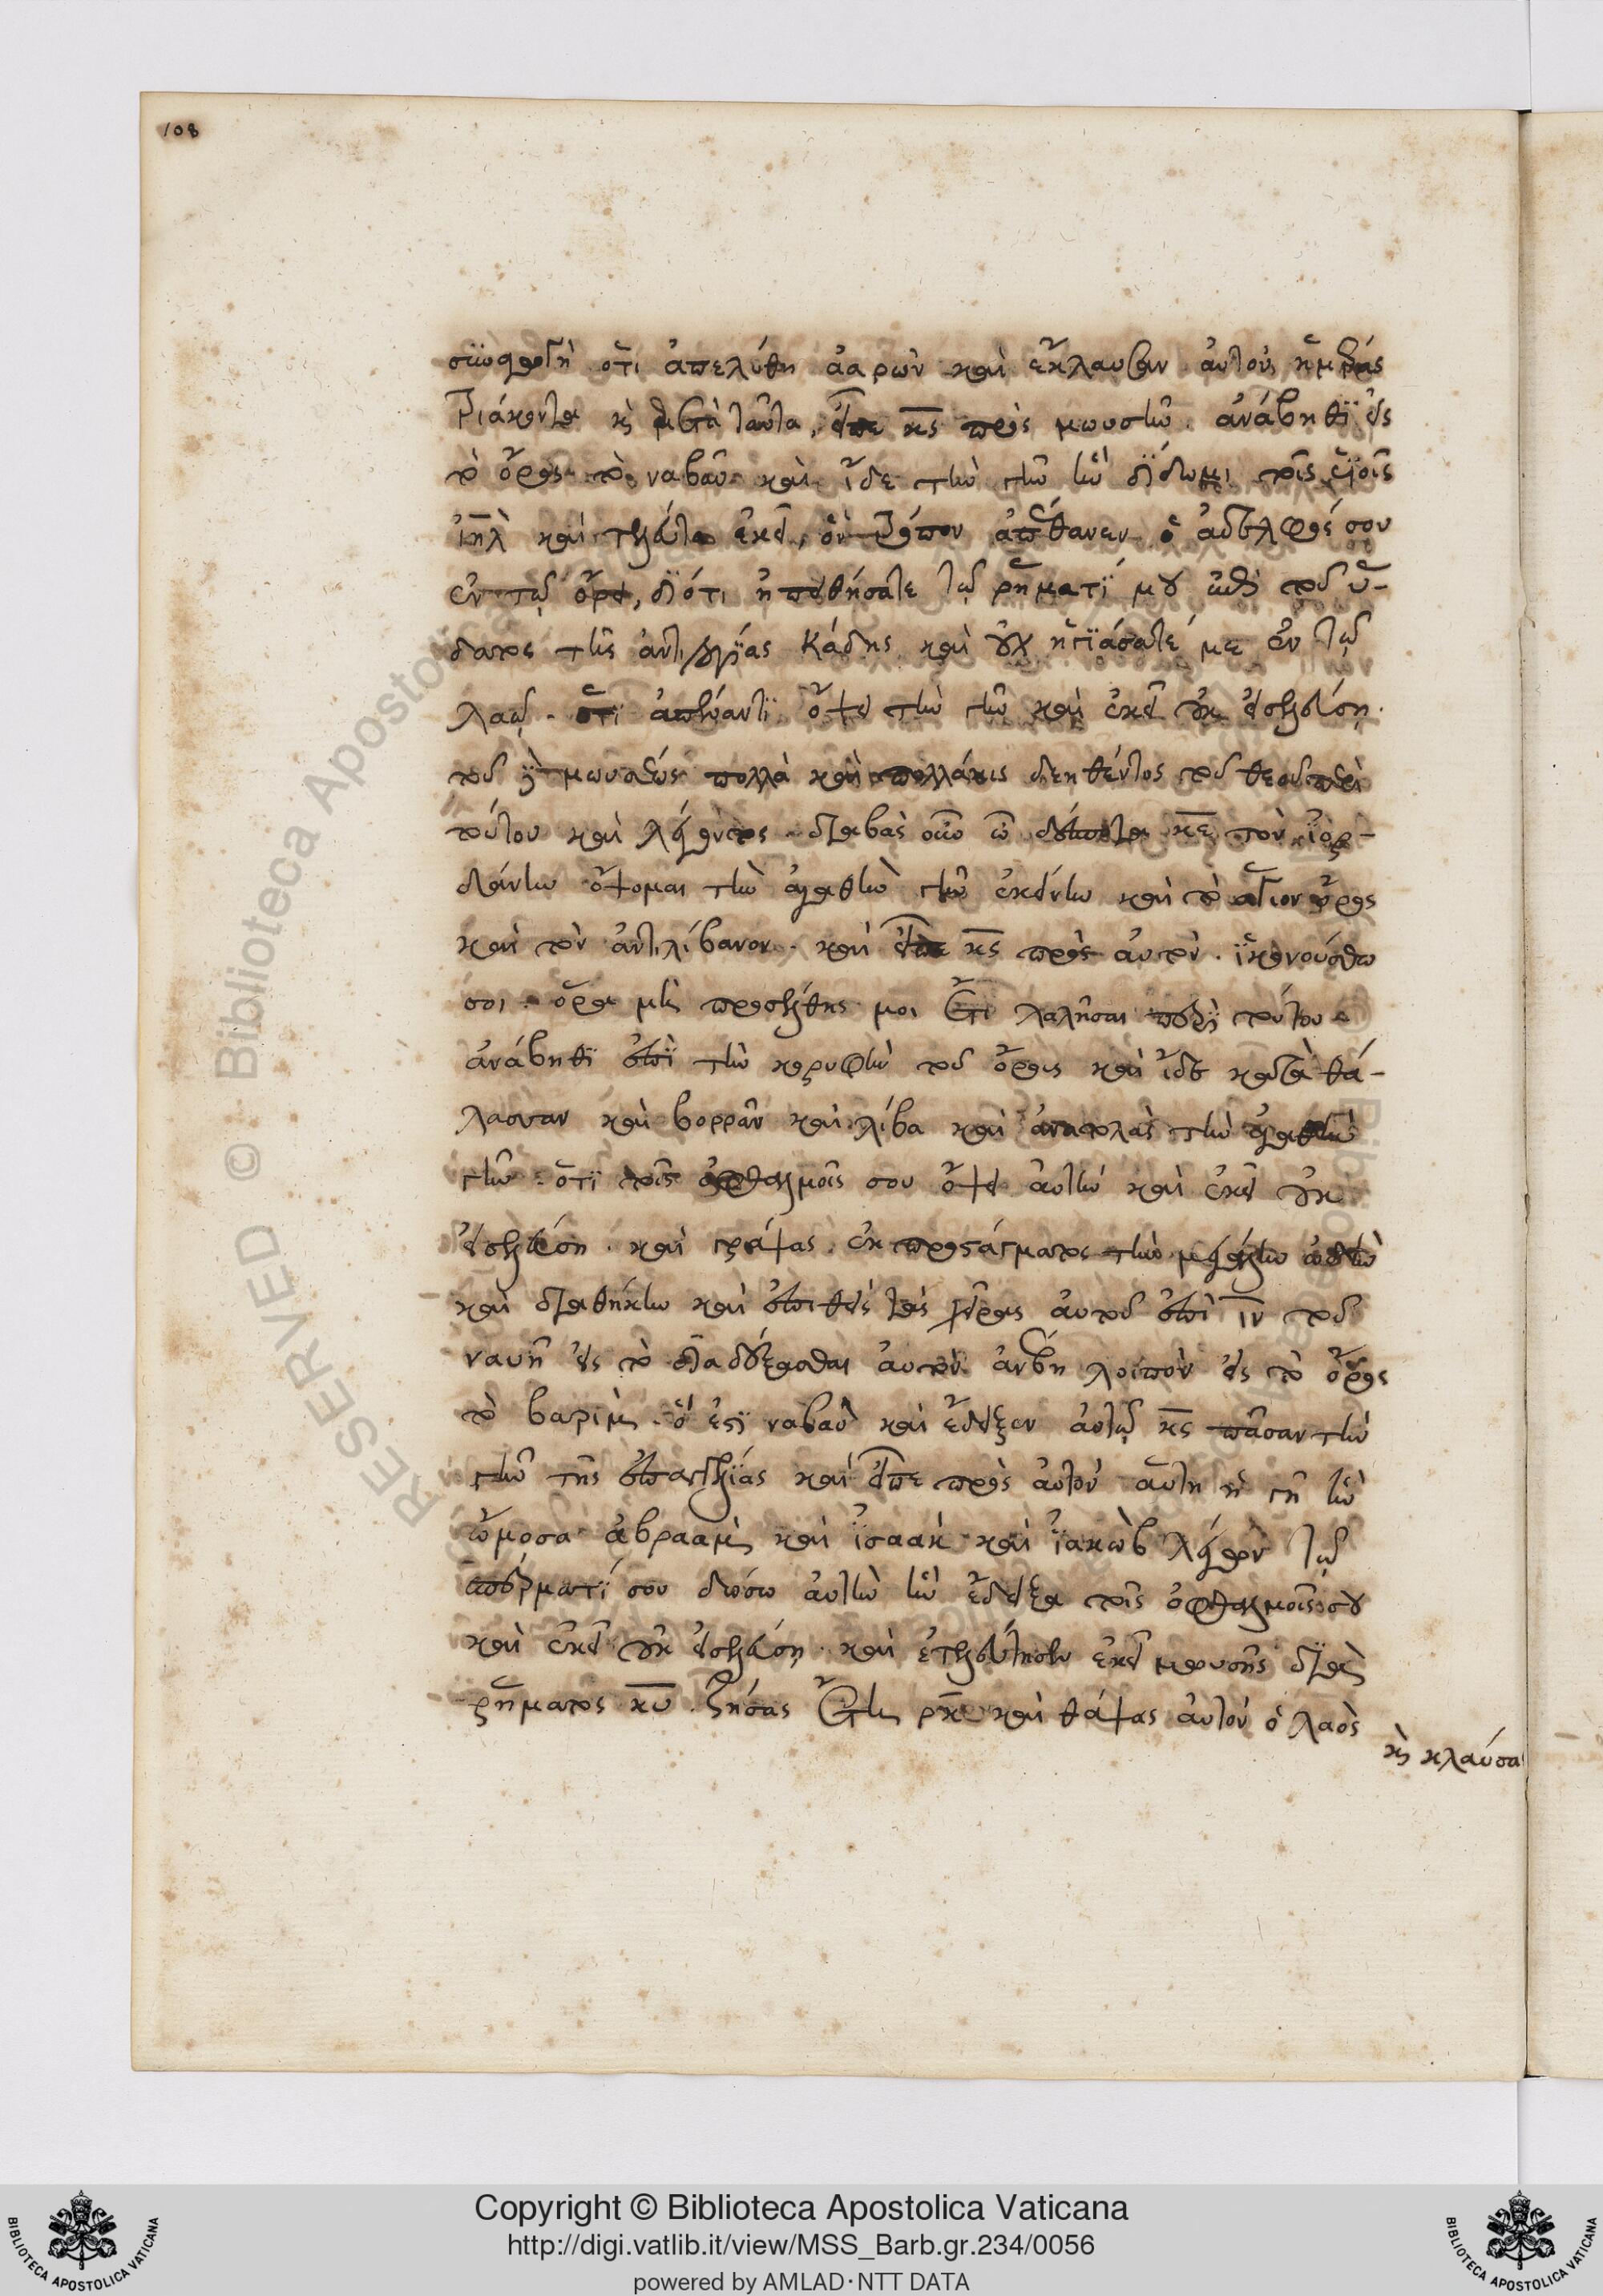 108
συναγωγὴ ὅτι ἀπελύθη ἀαρὼν καὶ ἔκλαυσαν αὐτοὺς ἡμέρας
τριάκοντα κ̀ μετὰ ταῦτα, εἶπε κ̅ς̅ πρὸς μωυσῆν. ἀνάβηθϊ εἰς
τὸ ὄρος τὸ ναβαῦ καὶ ἴδε τὴν γῆν ἣν δίδωμι τοῖς υἱοῖς
ι̅η̅λ̅ καὶ τελεύτα ἐκεῖ, ὃν τρόπον ἀπέθανεν ὁ ἀδελφός σου
ἐν τῷ ὄρει, διότι ἠπειθήσατε τῷ ῥήματί μου ἐπὶ τοῦ ὕ-
δατος τῆς ἀντιλογίας Κάδης καὶ οὐχ ἡγιάσατέ με ἐν τῷ
λαῷ. ὅτι ἀπέναντι ὄψει τὴν γῆν καὶ ἐκεῖ οὐκ εἰσελεύσῃ.
τοῦ δὲ μωυσέως πολλὰ καὶ πολλάκις δεηθέντος τοῦ θεοῦ περὶ
τούτου καὶ λέγοντος διαβὰς οὖν ὦ δέσποτα κ̅ε̅ τὸν ἰορ-
δάνην ὄψομαι τὴν ἀγαθὴν γῆν ἐκείνην καὶ τὸ ἅγιον ὄρος
καὶ τὸν ἀντιλίβανον. καὶ εἶπε κ̅ς̅ πρὸς αὐτὸν. ἱκανούσθω
σοι. ὅρα μὴ προσθῇς μοι ἔτι λαλῆσαι περὶ τούτου
ἀνάβηθϊ ἐπὶ τὴν κορυφὴν τοῦ ὄρους καὶ ἴδε κατὰ θά-
λασσαν καὶ βορρᾶν καὶ λίβα καὶ ἀνατολὰς τὴν ἀγαθὴν
γῆν. ὅτι τοῖς ὀφθαλμοῖς σου ὄψει αὐτὴν καὶ ἐκεῖ οὐκ
εἰσελεύσῃ. καὶ γράψας ἐκ προστάγματος τὴν μεγάλην ᾠδὴν
καὶ διαθήκην καὶ ἐπιθεὶς τὰς χεῖρας αὐτοῦ ἐπὶ ι̅ν̅ τοῦ
ναυῆ εἰς τὸ διαδέξασθαι αὐτὸν ἀνέβη λοιπὸν εἰς τὸ ὄρος
τὸ βαρὶμ ὅ ἐστι ναβαῦ καὶ ἔδειξεν αὐτῷ κ̅ς̅ πᾶσαν τὴν
γῆν τῆς ἐπαγγελίας καὶ εἶπε πρὸς αὐτὸν αὕτη ἡ γῆ ἣν
ὤμοσα ἀβραὰμ καὶ ἰσαὰκ καὶ ἰακὼβ λέγων τῷ
σπέρματί σου δώσω αὐτὴν ἣν ἔδειξα τοῖς ὀφθαλμοῖς σου
καὶ ἐκεῖ οὐκ εἰσελεύσῃ. καὶ ἐτελεύτησεν ἐκεῖ μωυσῆς διὰ
ῥήματος κ̅υ̅. ζήσας ἔτη ρ̅κ̅ καὶ θάψας αὐτὸν ὁ λαὸς
κ̀ κλαύσα
RESERVED © Biblioteca Apostolica
Copyright © Biblioteca Apostolica Vaticana
http://digi.vatlib.it/view/MSS_Barb.gr.234/0056
powered by AMLAD·NTT DATA
BIBLIOTECA APOSTOLICA VATICANA
BIBLIOTECA APOSTOLICA VATICANA